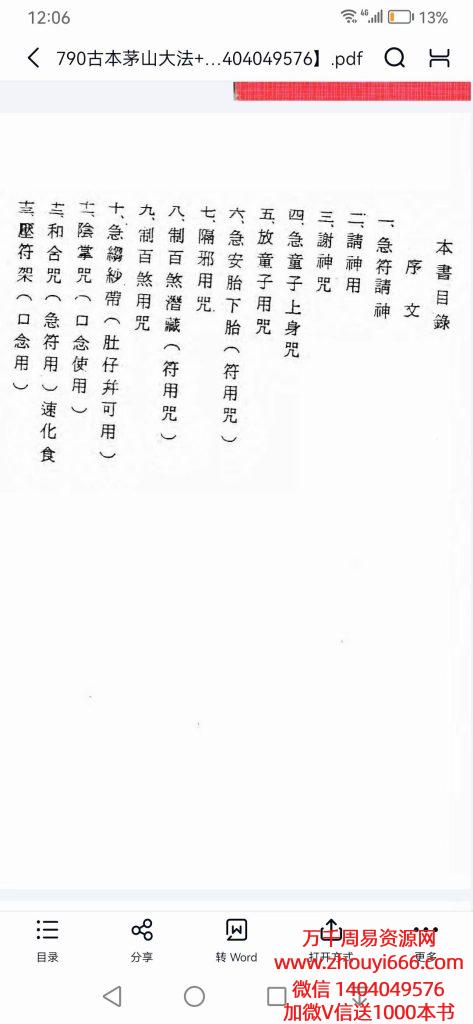 12:06
4G
13%
790古本茅山大法+...404049576】.pdf
本書目錄
序文
一、急符請神
二、請神用
三、謝神咒
四、急童子上身咒
五、放童子用咒
六、急安胎下胎（符用咒）
七、隔邪用咒
八、制百煞潛藏（符用咒）
九、制百煞用咒
十、急縐紗帶（肚仔幷可用）
十一、陰掌咒（口念使用）
十二、和合咒（急符用）速化食
十三、壓符架（口念用）
目录
分享
转 Word
打开方式
更多
万千周易资源网
www.zhouyi666.com
微信 1404049576
加微V信送1000本书